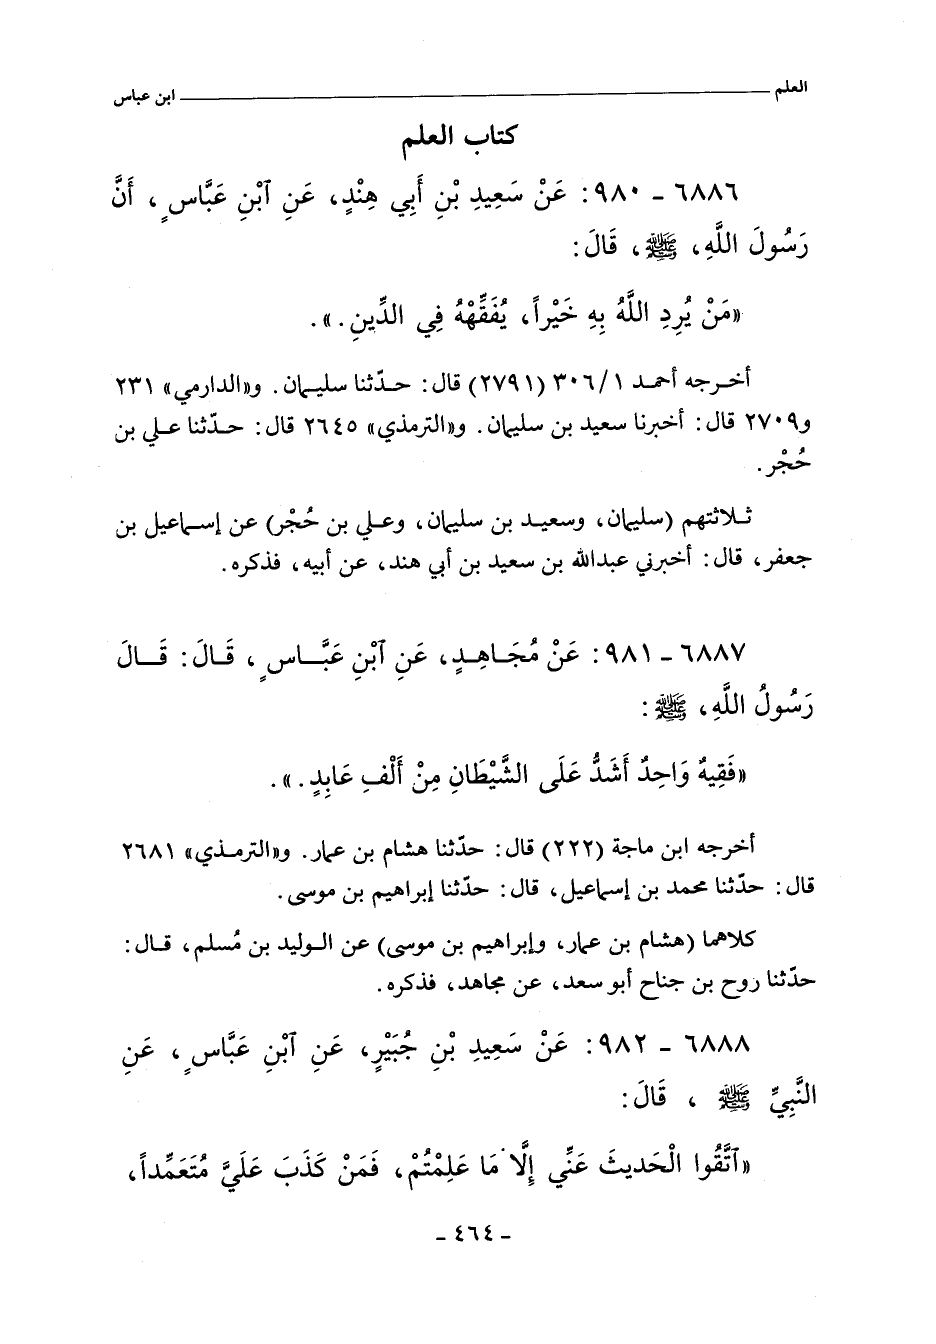 العلم ـــــــــــــــــ ابن عباس
كتاب العلم
٦٨٨٦ ـ ٩٨٠: عَنْ سَعِيدِ بْنِ أَبِي هِنْدٍ، عَنِ ٱبْنِ عَبَّاسٍ، أَنَّ
رَسُولَ اللَّهِ، ﷺ، قَالَ:
«مَنْ يُرِدِ اللَّهُ بِهِ خَيْراً، يُفَقِّهْهُ فِي الدِّينِ.».
أخرجه أحمد ٣٠٦/١ (٢٧٩١) قال: حدّثنا سليمان. و«الدارمي» ٢٣١
و٢٧٠٩ قال: أخبرنا سعيد بن سليمان. و«الترمذي» ٢٦٤٥ قال: حدّثنا علي بن
حُجْر.
ثلاثتهم (سليمان، وسعيد بن سليمان، وعلي بن حُجْر) عن إسماعيل بن
جعفر، قال: أخبرني عبدالله بن سعيد بن أبي هند، عن أبيه، فذكره.
٦٨٨٧ ـ ٩٨١: عَنْ مُجَاهِدٍ، عَنِ ٱبْنِ عَبَّاسٍ، قَالَ: قَالَ
رَسُولُ اللَّهِ، ﷺ:
«فَقِيهٌ وَاحِدٌ أَشَدُّ عَلَى الشَّيْطَانِ مِنْ أَلْفِ عَابِدٍ.».
أخرجه ابن ماجة (٢٢٢) قال: حدّثنا هشام بن عمار. و«الترمذي» ٢٦٨١
قال: حدّثنا محمد بن إسماعيل، قال: حدّثنا إبراهيم بن موسى.
كلاهما (هشام بن عمار، وإبراهيم بن موسى) عن الوليد بن مُسلم، قال:
حدّثنا روح بن جناح أبو سعد، عن مجاهد، فذكره.
٦٨٨٨ ـ ٩٨٢: عَنْ سَعِيدِ بْنِ جُبَيْرٍ، عَنِ ٱبْنِ عَبَّاسٍ، عَنِ
النَّبِيِّ ﷺ ، قَالَ:
«ٱتَّقُوا الْحَدِيثَ عَنِّي إِلَّا مَا عَلِمْتُمْ، فَمَنْ كَذَبَ عَلَيَّ مُتَعَمِّداً،
ـ ٤٦٤ ـ